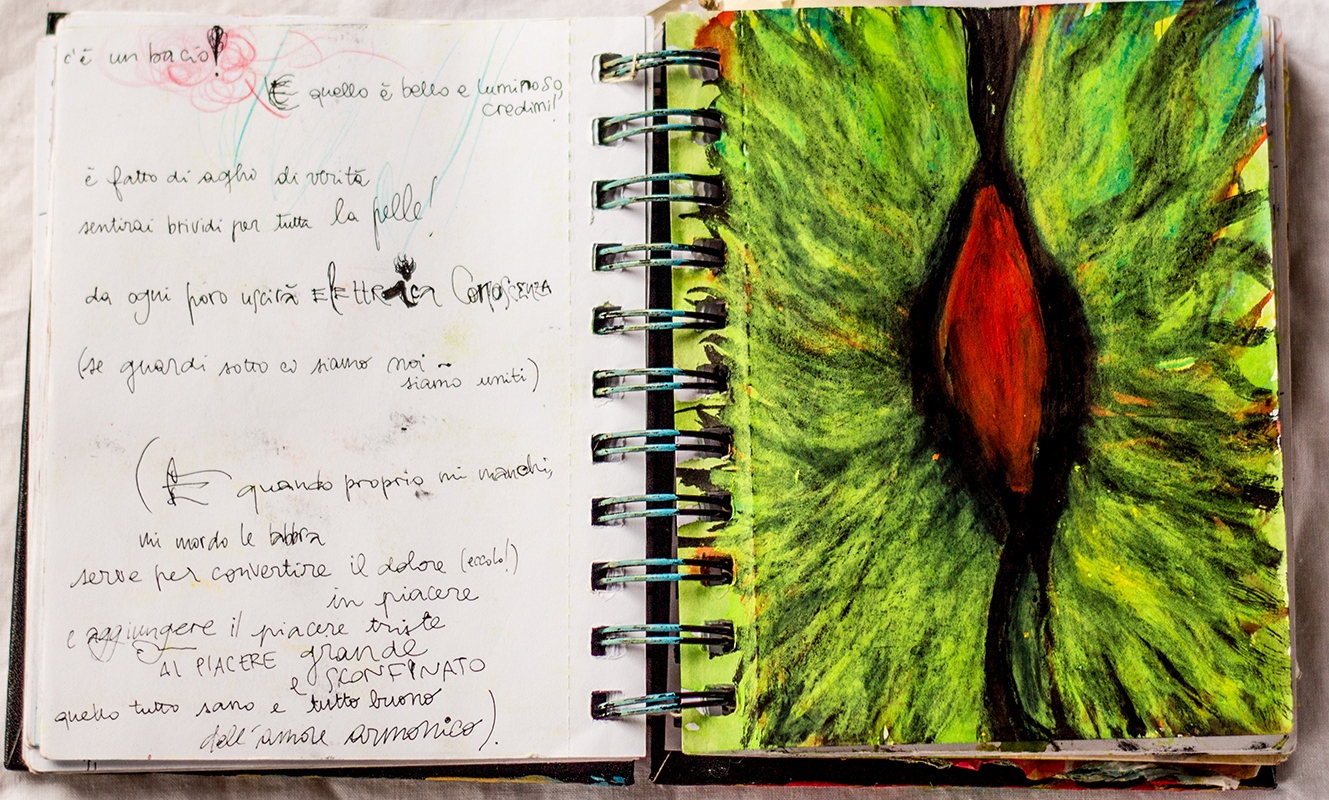 c'è un bacio!
E quello è bello e luminoso,
credimi!
è fatto di aghi di verità
sentirai brividi per tutta la pelle!
da ogni poro uscirà ElettRica ConoscENZA
(se guardi sotto ci siamo noi -
siamo uniti)
(E quando proprio mi manchi,
mi mordo le labbra
serve per convertire il dolore (eccolo!)
in piacere
e aggiungere il piacere triste
AL PIACERE grande
e SCONFINATO
quello tutto sano e tutto buono
dell'amore armonico).